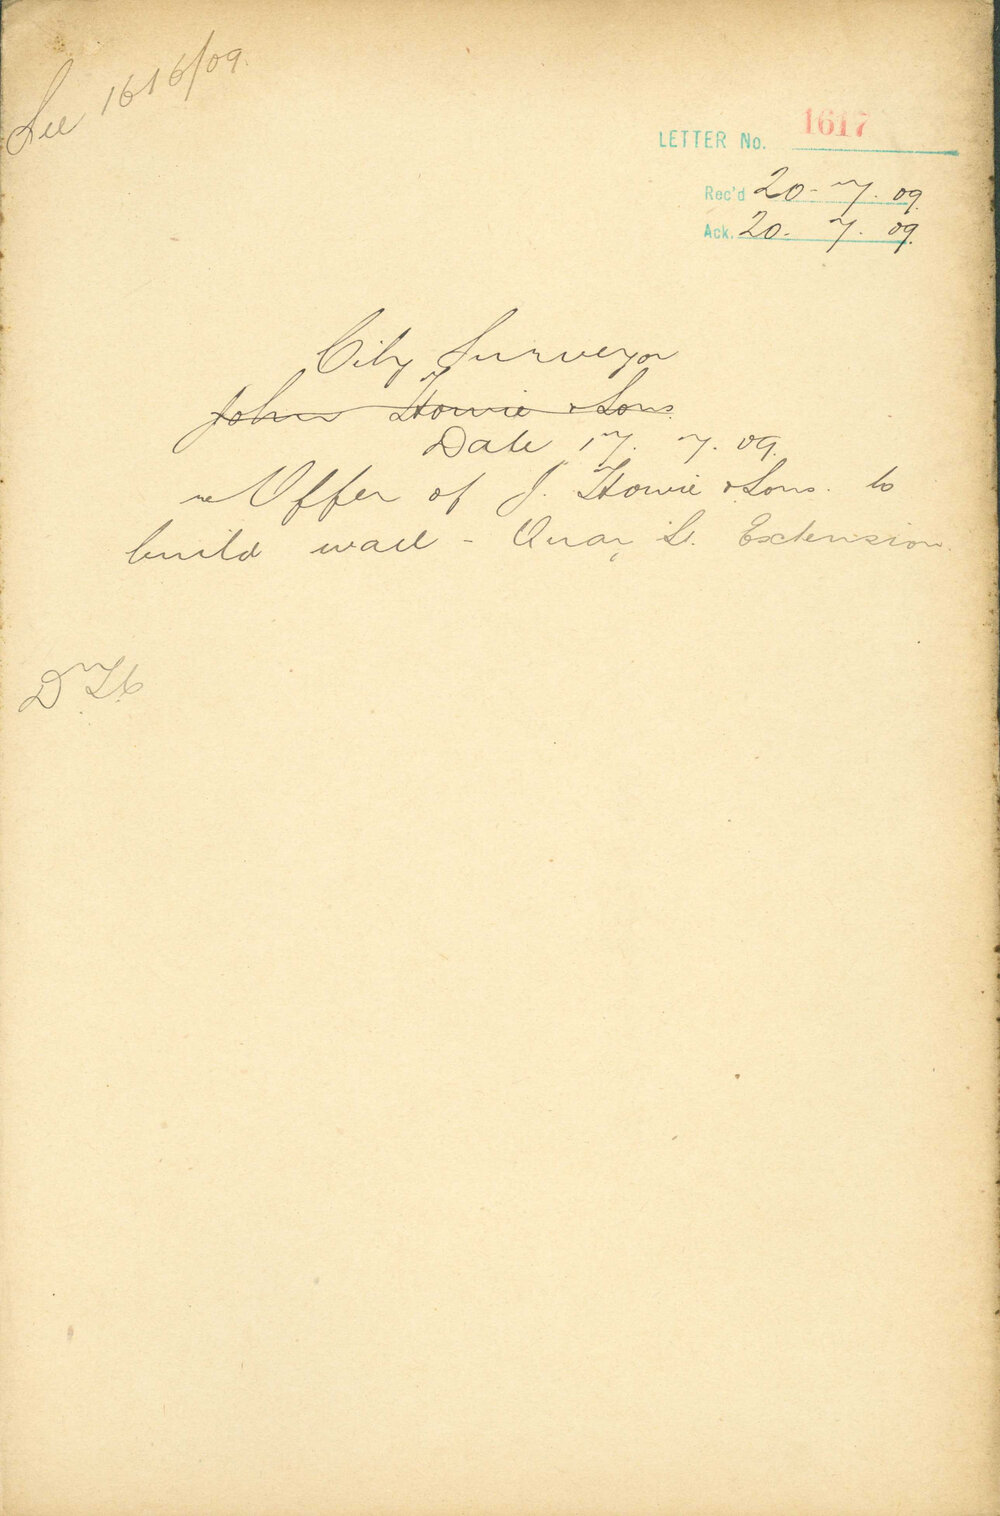 See 1616/09.
LETTER No. 1617
Rec'd 20-7.09.
Ack. 20-7.09.
City Surveyor
John Howie & Sons.
Date 17.7.09.
re Offer of J. Howie & Sons. to
build wall - Quay St. Extension.